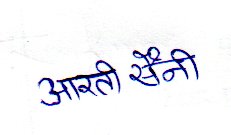 आरती सैनी